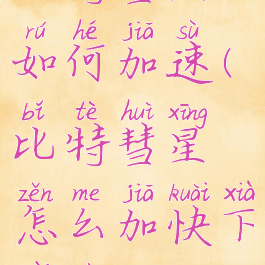 rú hé jiā sù
如何加速(
bǐ tè huì xīng
比特彗星
zěn me jiā kuài xià
怎么加快下